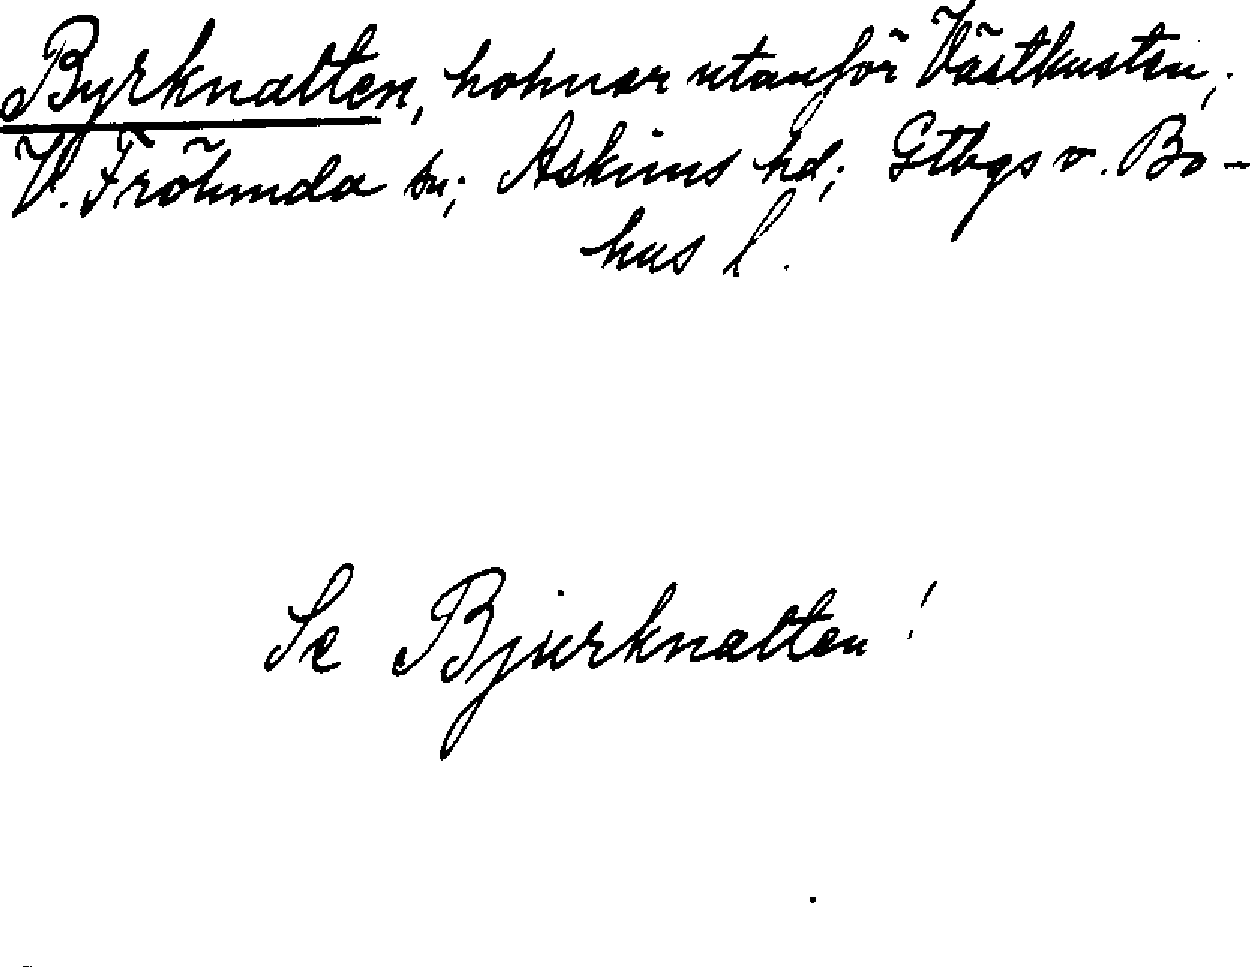 Byrknatten, holmar utanför Västkusten,
V. Frölunda sn; Askims hd; Gtbgs o. Bo-
hus l.
Se Bjurknatten!